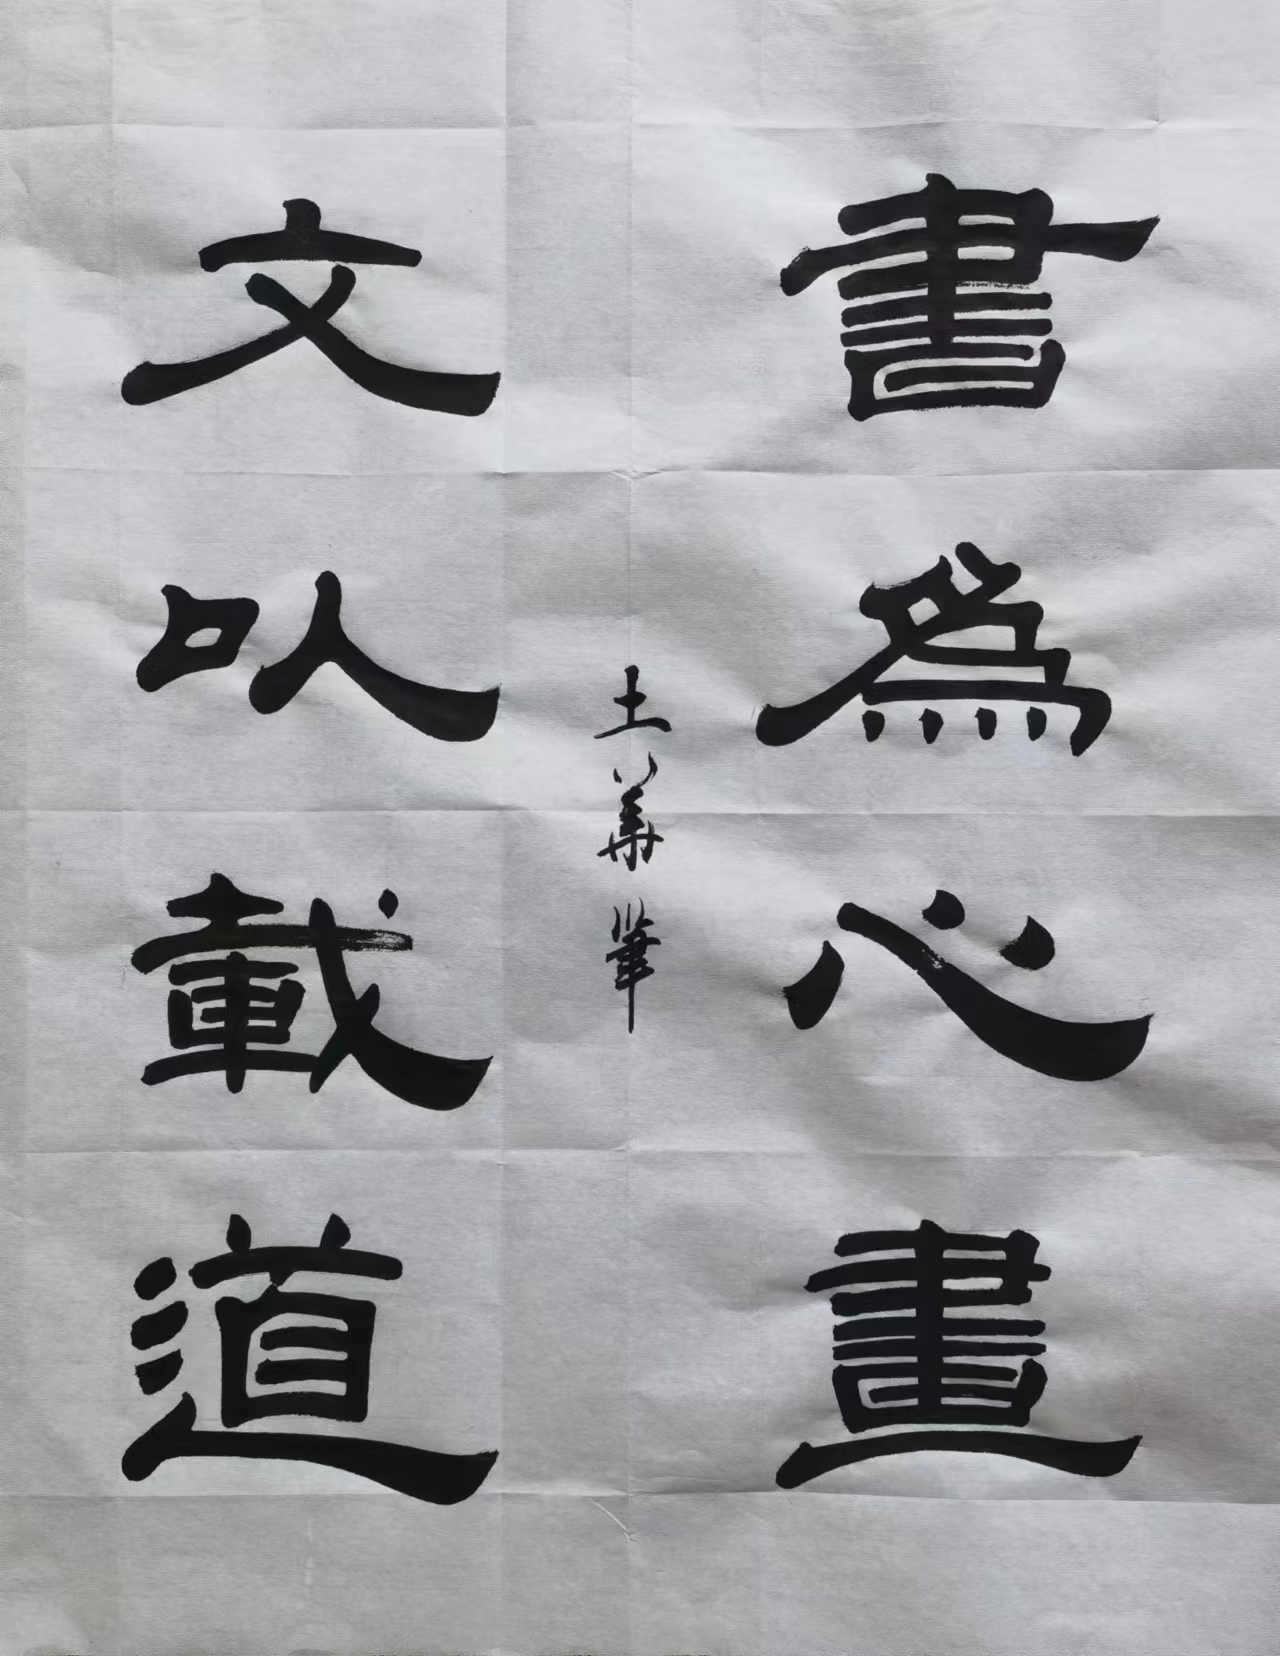 書為心畫
文以載道
士華筆